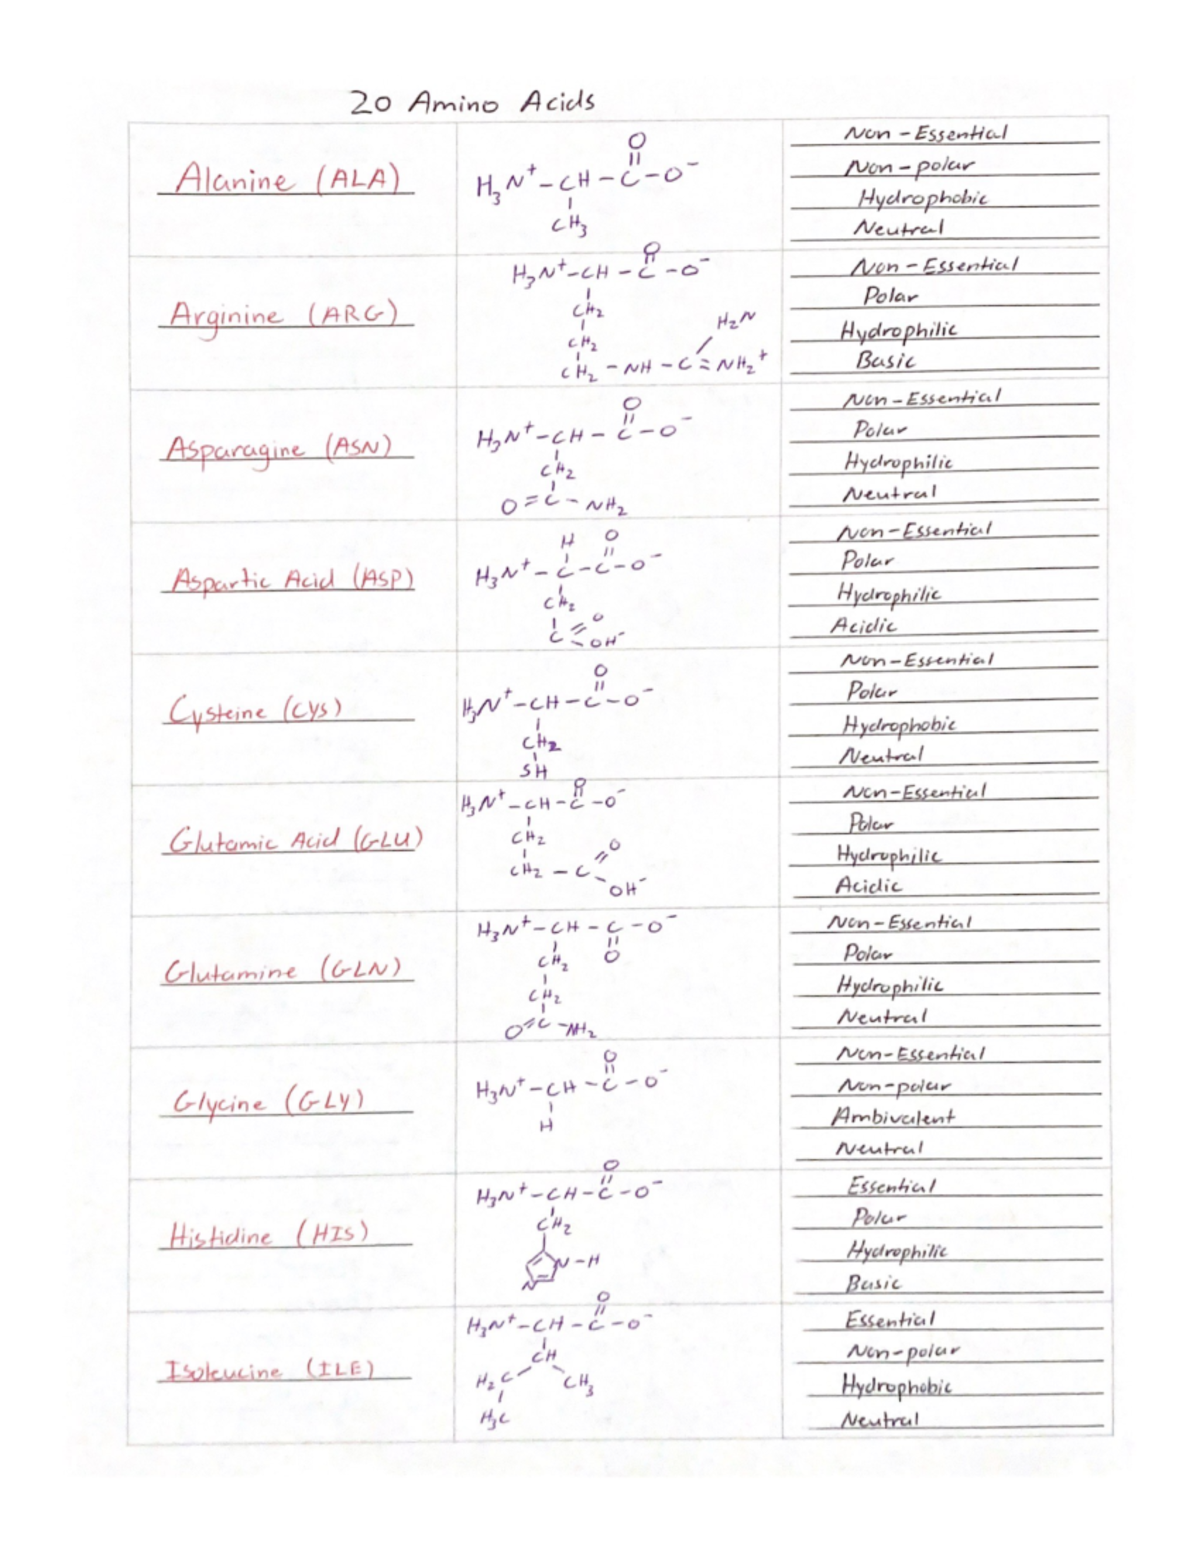 20 Amino Acids
Alanine (ALA)
O
H₃N⁺ – CH – C – O⁻
CH₃
Non-Essential
Non-polar
Hydrophobic
Neutral
Arginine (ARG)
O
H₃N⁺ – CH – C – O⁻
CH₂
H₂N
CH₂
CH₂ – NH – C = NH₂⁺
Non-Essential
Polar
Hydrophilic
Basic
Asparagine (ASN)
O
H₃N⁺ – CH – C – O⁻
CH₂
O = C – NH₂
Non-Essential
Polar
Hydrophilic
Neutral
Aspartic Acid (ASP)
H O
H₃N⁺ – C – C – O⁻
CH₂
O
C
OH⁻
Non-Essential
Polar
Hydrophilic
Acidic
Cysteine (CYS)
O
H₃N⁺ – CH – C – O⁻
CH₂
SH
Non-Essential
Polar
Hydrophobic
Neutral
Glutamic Acid (GLU)
O
H₃N⁺ – CH – C – O⁻
CH₂
O
CH₂ – C
OH⁻
Non-Essential
Polar
Hydrophilic
Acidic
Glutamine (GLN)
H₃N⁺ – CH – C – O⁻
CH₂ O
CH₂
O = C – NH₂
Non-Essential
Polar
Hydrophilic
Neutral
Glycine (GLY)
O
H₃N⁺ – CH – C – O⁻
H
Non-Essential
Non-polar
Ambivalent
Neutral
Histidine (HIS)
O
H₃N⁺ – CH – C – O⁻
CH₂
N – H
N
Essential
Polar
Hydrophilic
Basic
Isoleucine (ILE)
O
H₃N⁺ – CH – C – O⁻
CH
H₂C CH₃
H₃C
Essential
Non-polar
Hydrophobic
Neutral